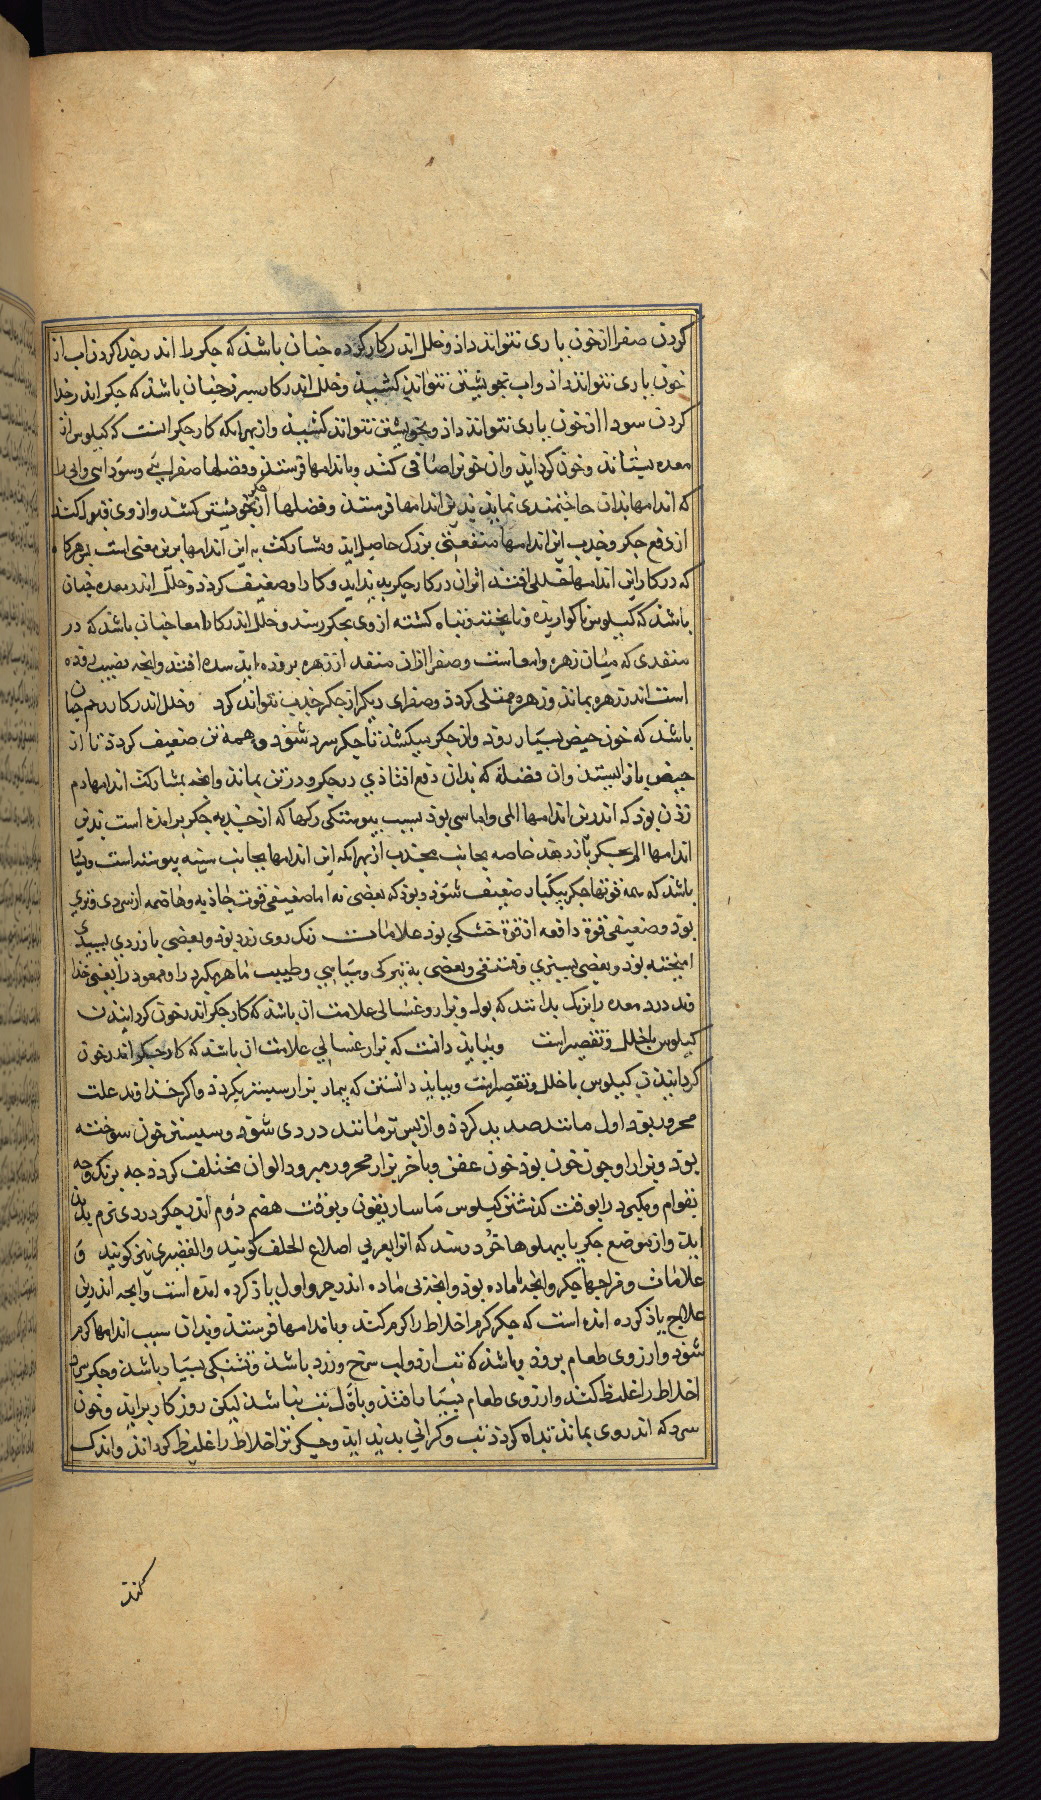 کردن صفرا از خون یاری نتواند داذ و خلل اندر کار کرده چنان باشذ که جکر را اندر جذا کردن اب از
خون یاری نتواند داذ و اب بخویشتن نتواند کشیذ و خلل اندر کار سپرز چنان باشذ که جکر اندر جذا
کردن سودا از خون یاری نتواند داذ و بخویشتن نتواند کشیذ و از بهر انکه کار جکر انست که کیلوس از
معده بستاند و خون کرداند و ان خون را صافی کند و باندامها فرستذ و فضلها صفرایی و سوداسی و ابی را
که اندامها بدان حاجتمندی نماید بدین اندامها فرستذ و فضلها از جکر بخویشتن کشد و از وی قبول کند
از دفع جکر و جذب این اندامها منفعتی بزرک حاصل اید و مشارکت به این اندامها برین معنی است بس هرکاه
که در کار این اندامها خللی افتد اثر ان در کار جکر بدید اید و کار او ضعیف کردد و خلل اندر معده چنان
باشذ که کیلوس ناکواریده و ناپخته و تباه کشته از وی بجکر رسد و خلل اندر کار امعا چنان باشذ که در
منفدی که میان زهره و امعا ست و صفرا ازان منفد از زهره بروده اید سده افتد و انچه نصیب روده
است اندر زهره بماند و زهره ممتلی کردد و صفرای دیکر از جکر جذب نتواند کرد و خلل اندر کار رحم چنان
باشذ که خون حیض بسیار رود و از جکر بیکشذ تا جکر سرد شود و همه تن ضعیف کردد تا از
حیض باز ایستد و ان فضله که بدان دفع افتاذی در جکر و در تن بماند و انچه بمشارکت اندامها دم
زدن بود که اندرین اندامها المی و اماسی بود بسبب پیوستکی رکها که از حدبه جکر برامده است بدین
اندامها الم بجکر باز دهد خاصه بجانب محدب از بهر انکه این اندامها بجانب سینه پیوسته است و بسیا
باشذ که همه قوتها جکر بیکبار ضعیف شود و بود که بعضی نه اما ضعیفی قوت جاذبه و هاضمه از سردی و تری
بود و ضعیفی قوة دافعه از قوة خشکی بود علامات رنک روی زرد بود و بعضی با زردی سپیدی
امیخته بود و بعضی بسبزی و بنفشی و بعضی به تیرکی و سیاهی و طبیب ماهر مکبود را و ممعود را یعنی خدا
وند درد معده را برنک بدانند که بول و براز و غسالی علامت ان باشد که کار جکر اندر خون کردانیدن
کیلوس باخلل و تقصیر است و بباید دانست که براز غسالی علامت ان باشد که کار جکر اندر خون
کردانیدن کیلوس با خلل و تقصیرست و بباید دانستن که بیمار براز سبستر بکردد و اکر خداوند علت
محرور بود اول مانند صدید کردد و از پس تر مانند دردی شود و سپستر خون سوخته
بود و براز او چون خون بود خون عفن و باخر براز محرور مبرود الوان مختلف کردد چه برنک و چه
بقوام و مکبود را بوقت کذشتن کیلوس بماساریقون و بوقت هضم دوم اندر جکر دردی نرم پدید
اید و از موضع جکر با پهلوها خرد رسد که انرا بعربی اضلاع الخلف کویند و القصیری نیز کویند و
علامات و مزاجها جکر و انچه با ماده بود و انچه بی ماده اندر جزو اول یاذ کرده امده است و انچه اندرین
علاج یاذ کرده امده است که جکر کرم اخلاط را کرم کند و باندامها فرستذ و بدان سبب اندامها کرم
شود و ارزوی طعام برود و باشد که تب ارد و لب سرخ و زرد باشذ و تشنکی بسیار باشذ و جکر سرد
اخلاط را غلیظ کند و ارزوی طعام بسیار افتد و باول تب نباشد لیکن روز کار براید و خون
سرد که اندروی بماند تباه کردد تب و کرانی بدید اید و جکر تر اخلاط را غلیظ کرداند و اندک
کند